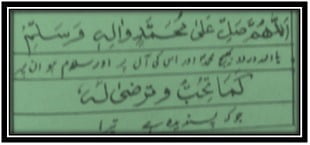 اَللّٰهُمَّ صَلِّ عَلٰى مُحَمَّدٍ وَّاٰلِهٖ وَسَلِّمْ
یا اللہ درود بھیج محمد اور اس کی آل پر اور سلام ہو ان پر
كَمَا تُحِبُّ وَتَرْضٰى لَهٗ
جو کہ پسندیدہ ہے تیرا